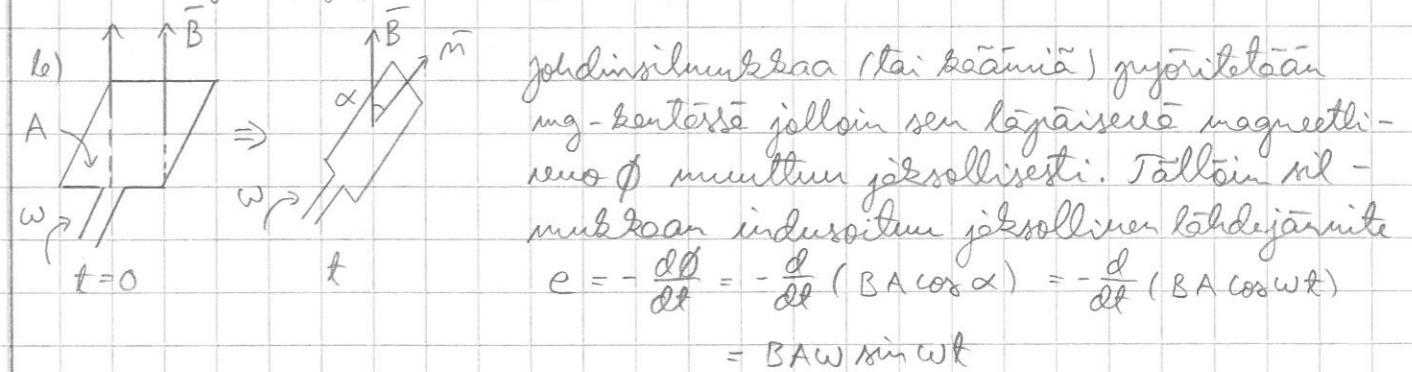 b)
B̄
A
ω
t=0
⇒
B̄
n̄
α
ω
t
johdinsilmukkaa (tai käämiä) pyöritetään
mg-kentässä jolloin sen läpäisevä magneetti-
vuo ϕ muuttuu jaksollisesti. Tällöin sil-
mukkaan indusoituu jaksollinen lähdejännite
e = - dϕ/dt = - d/dt (BA cos α) = - d/dt (BA cos ωt)
= BAω sin ωt